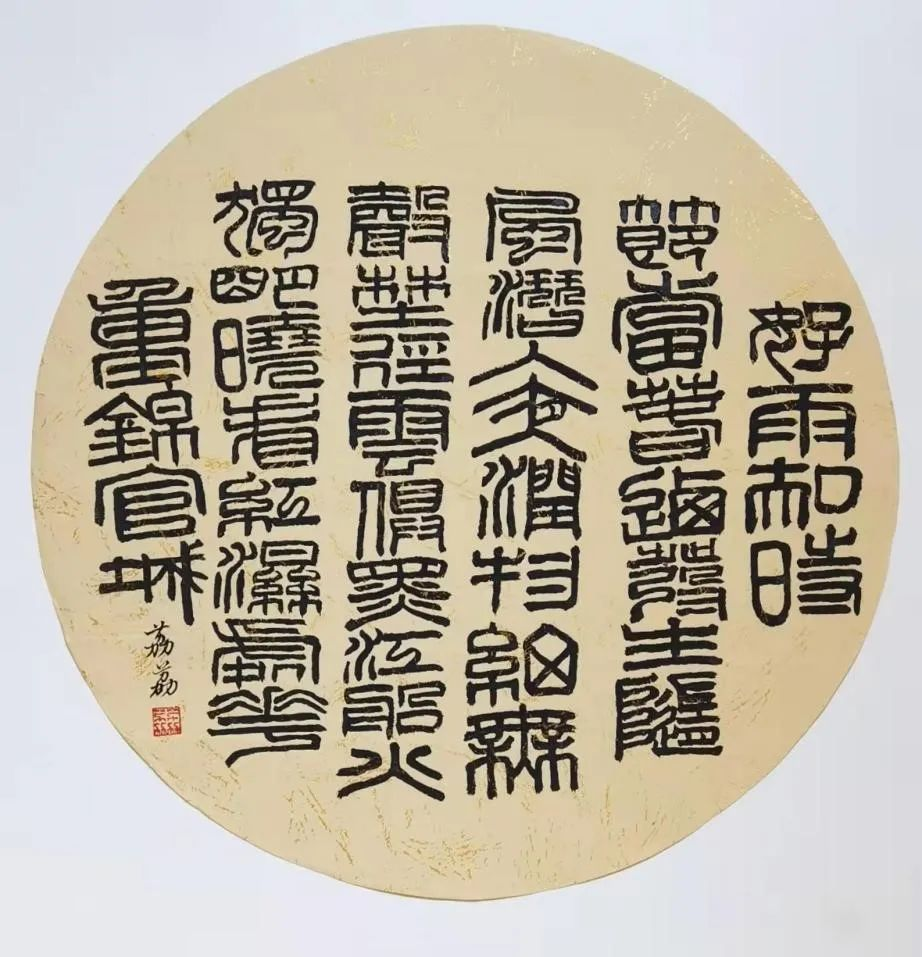 好雨知時
節當春迺發生隨
風潛入夜潤物細無
聲埜徑雲俱黑江船火
獨明曉看紅濕處花
重錦官城
荔荔